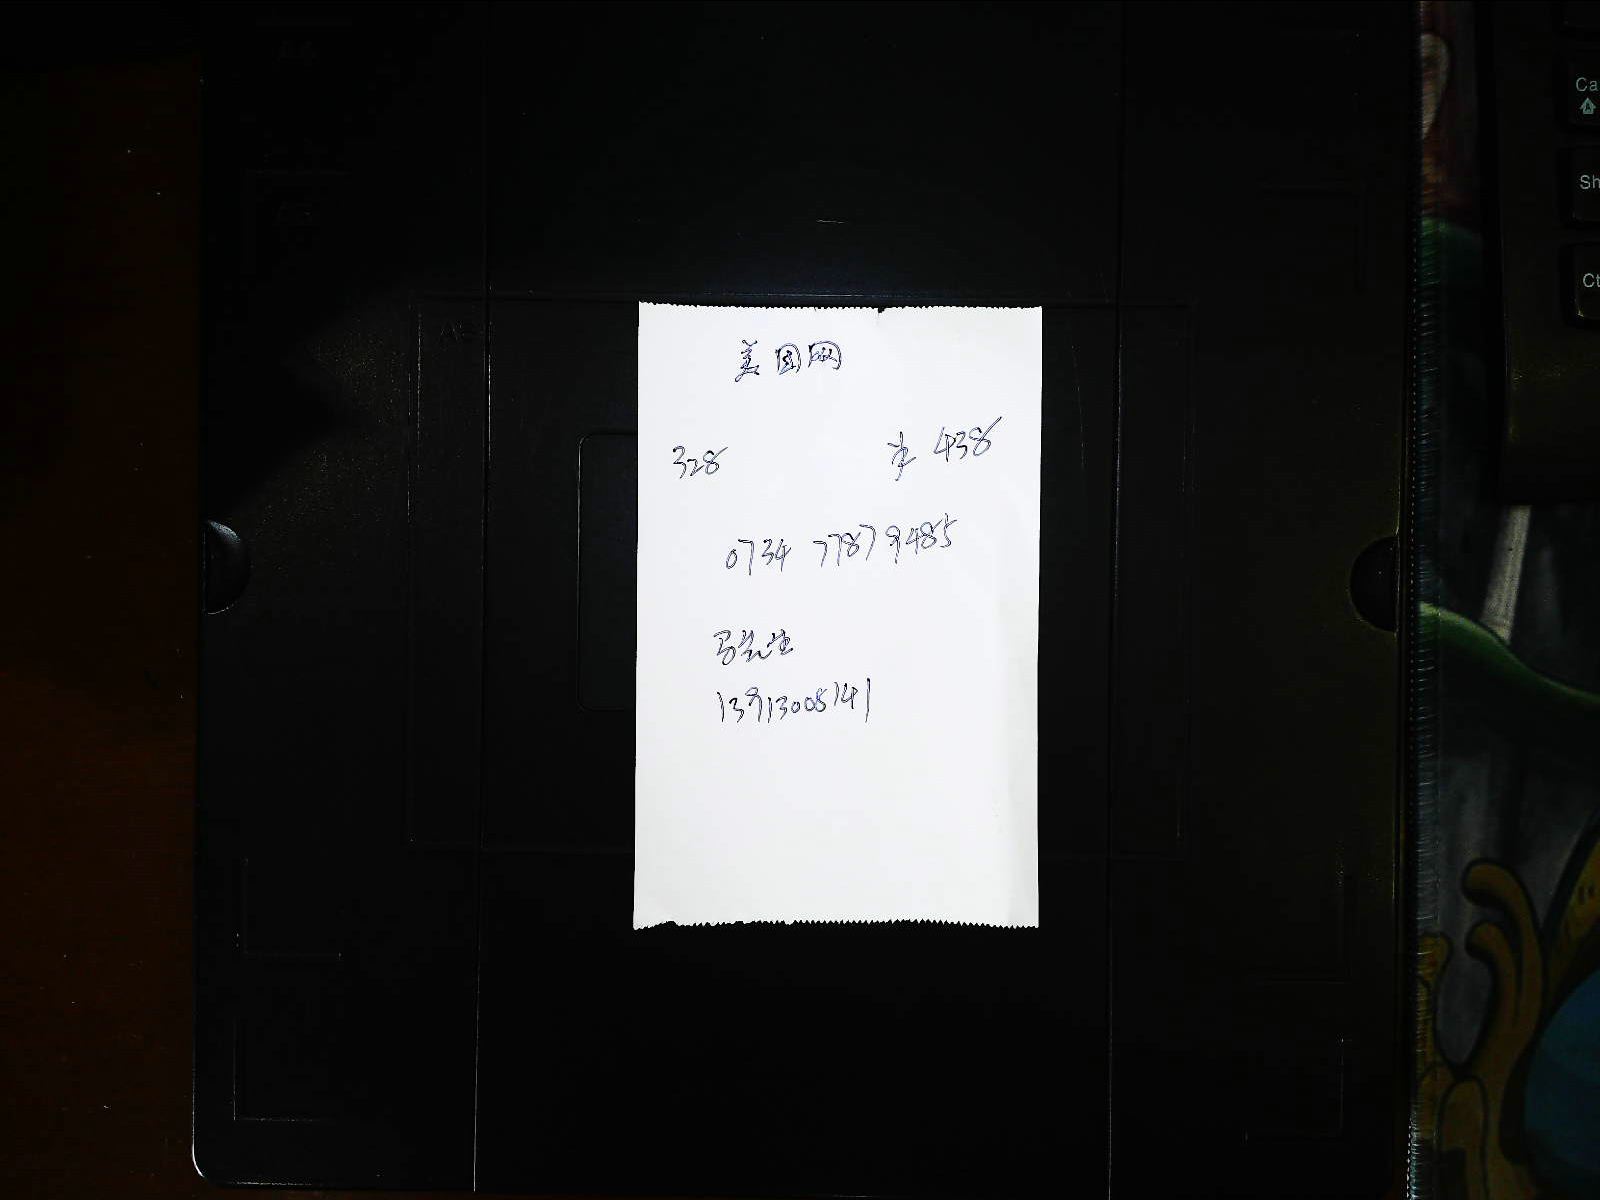 美团网
328 半 438
0734 77879485
马先生
13913008141
Ca
Sh
Ct
A5